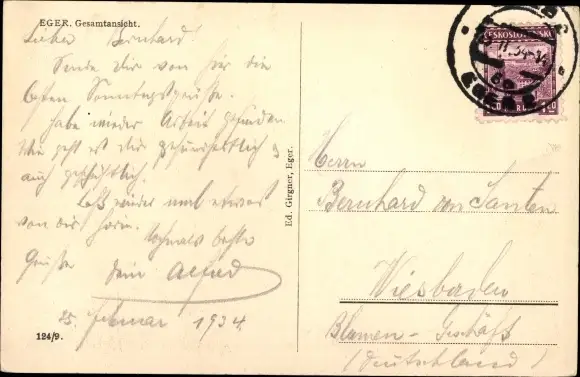 EGER. Gesamtansicht.
Lieber Bernhard!
Sende Dir von hier die
besten Sonntagsgrüße.
Habe wieder Arbeit gefunden
Wie geht es dir gesundheitlich &
auch geschäftlich.
Laß wieder mal etwas
von dir hören. Nochmals beste
Grüße Dein Alfred
25. Februar 1934.
124/9.
Ed. Girgner, Eger.
ČESKOSLOVENSKO
Herrn
Bernhard von Santen
Wiesbaden
Blumen-Geschäft
(Deutschland)